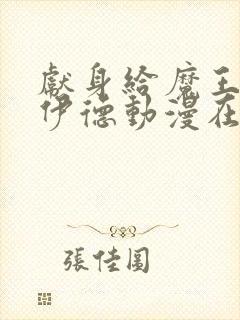 獻身給魔王
伊德動漫在
張佳圓